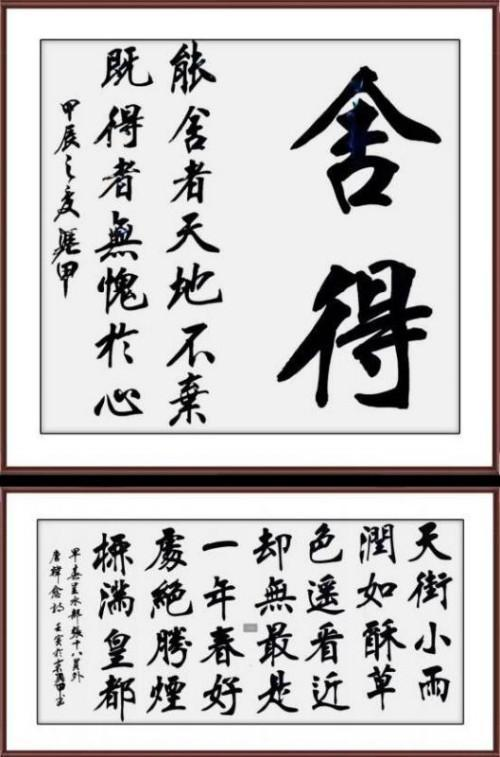 舍得
能舍者天地不棄
既得者無愧於心
甲辰之夏 甲
天街小雨
潤如酥草
色遥看近
却無最是
一年春好
處絕勝煙
柳滿皇都
早春呈水部張十八員外
唐韓愈詩 壬寅於京 甲书